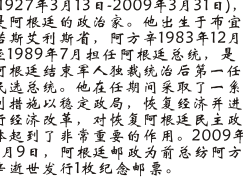 1927年3月13日-2009年3月31日),
是阿根廷的政治家。他出生于布宜
诺斯艾利斯省，阿方辛1983年12月
至1989年7月担任阿根廷总统，是
阿根廷结束军人独裁统治后第一任
民选总统。他在任期间采取了一系
列措施以稳定政局，恢复经济并进
行经济改革，对恢复阿根廷民主政
体起到了非常重要的作用。2009年
月9日，阿根廷邮政为前总统阿方
辛逝世发行1枚纪念邮票。